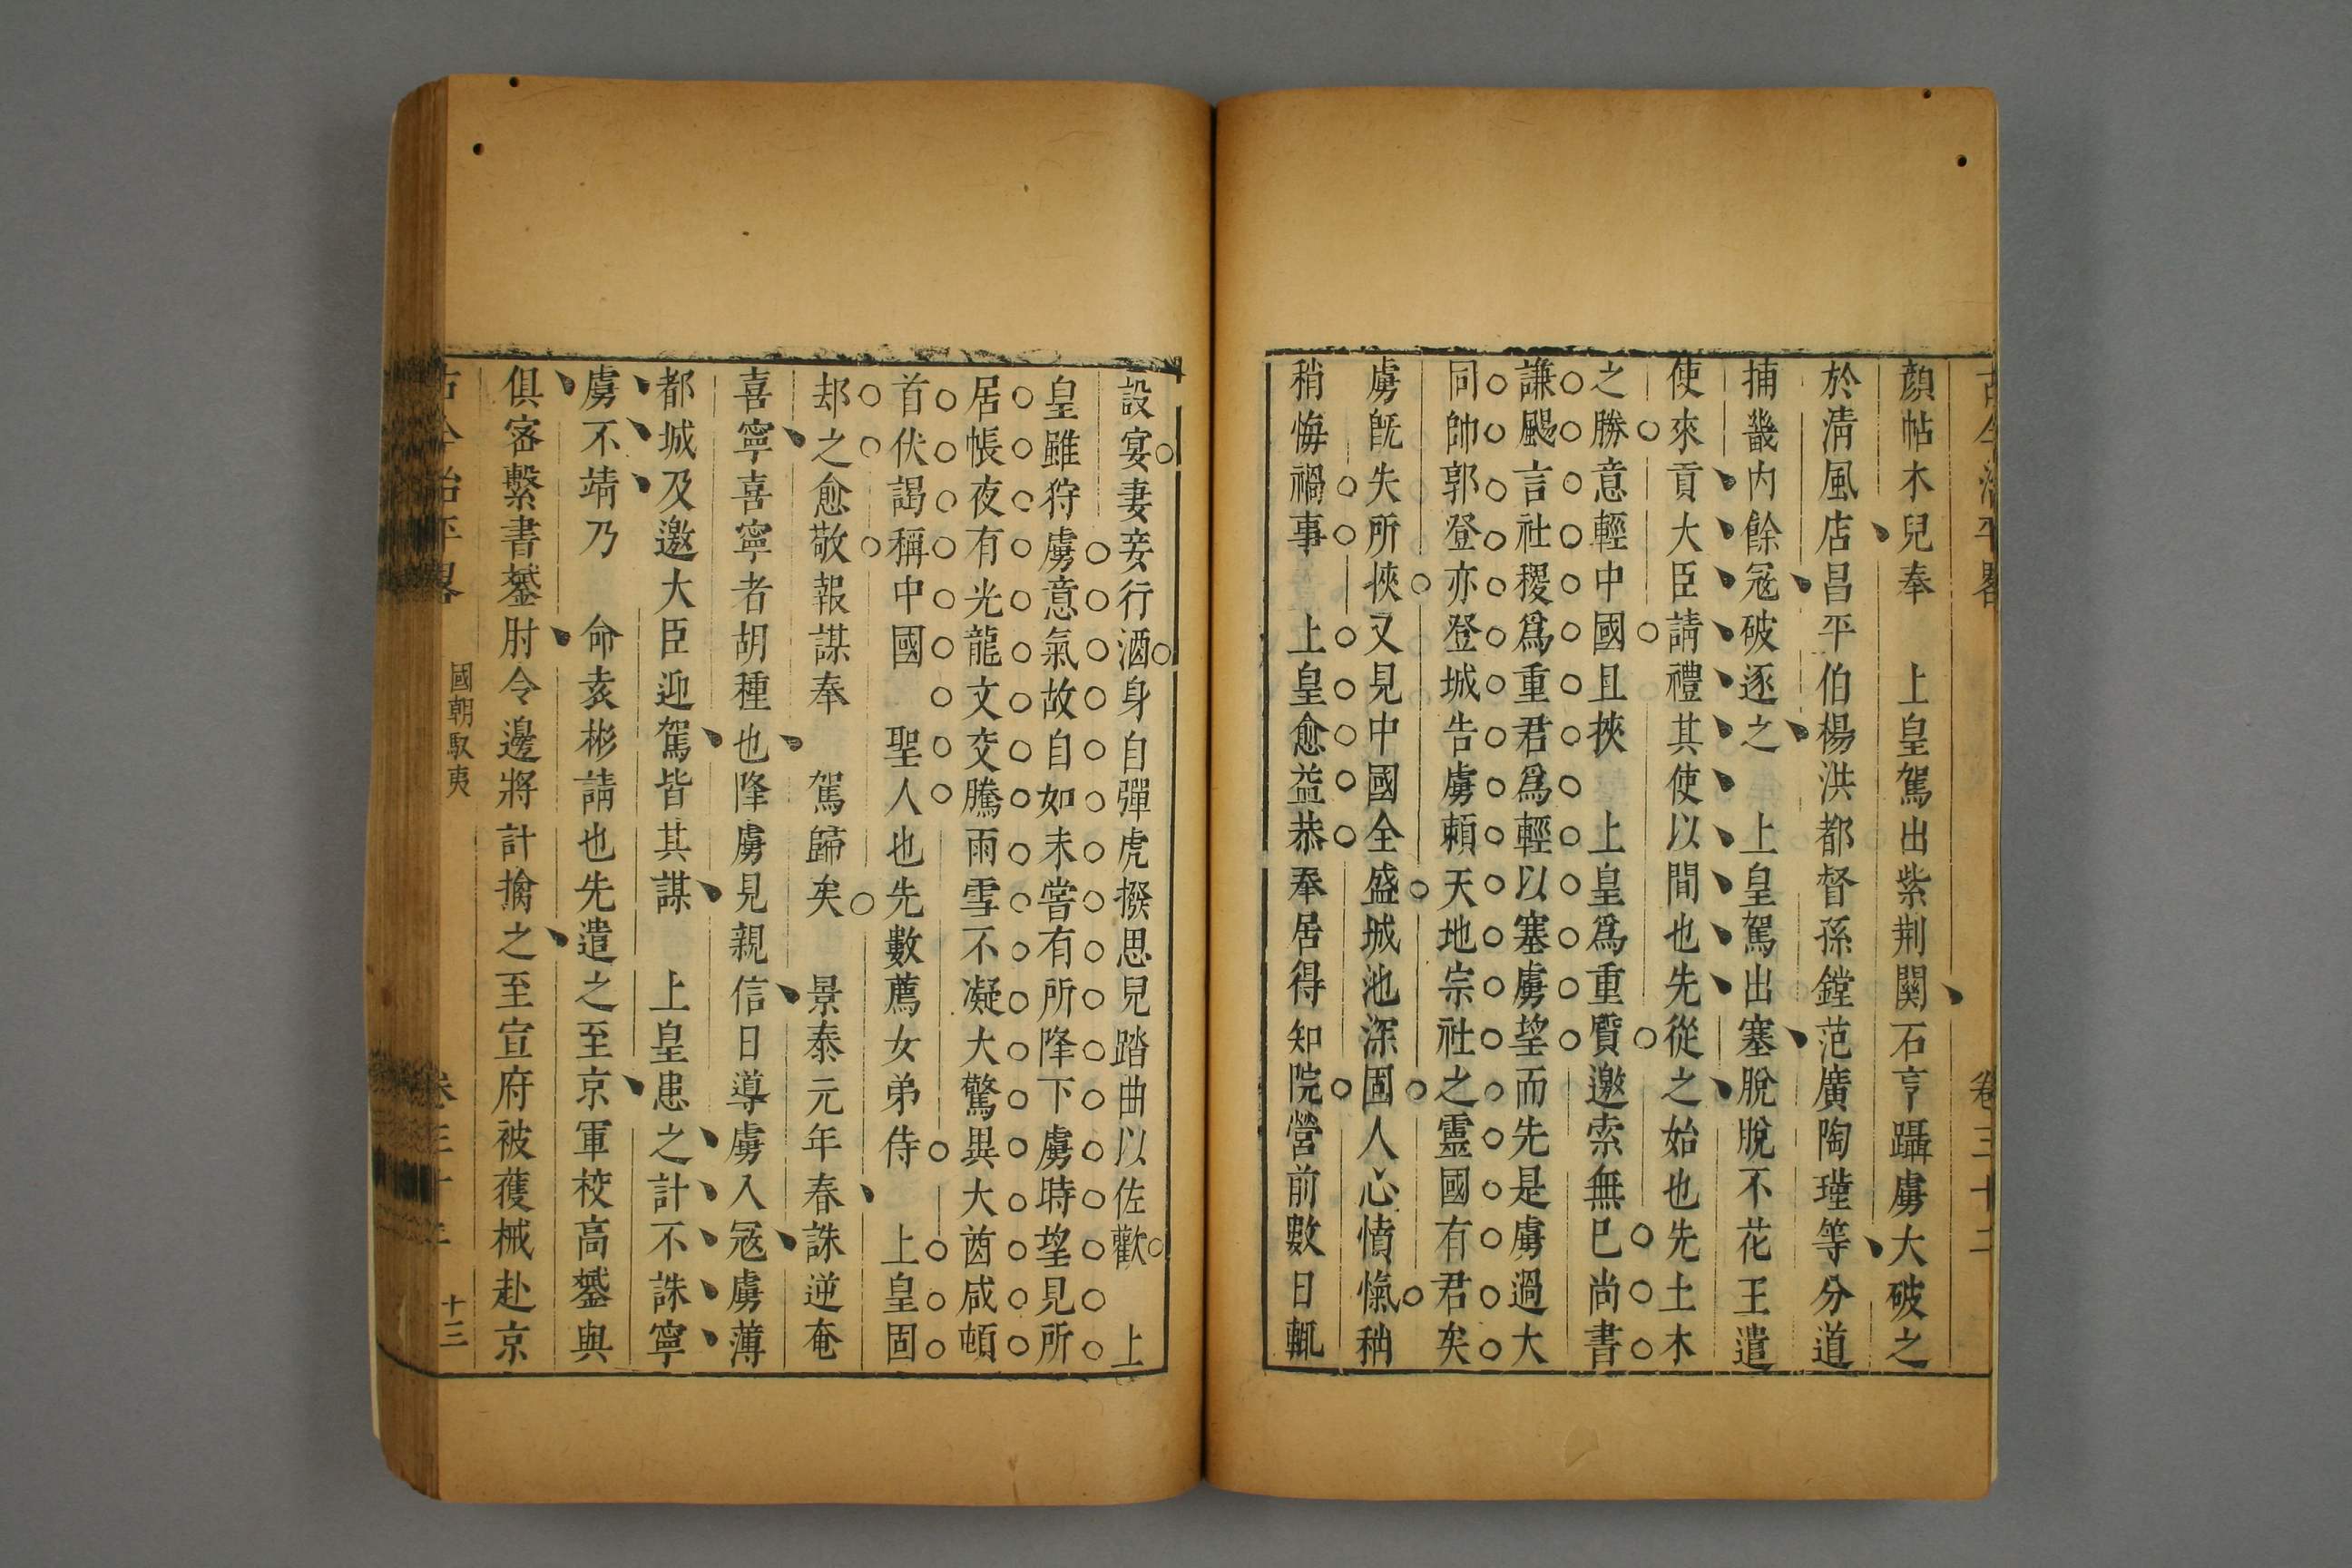 古今治平畧
卷三十二
顏帖木兒奉　上皇駕出紫荆關石亨躡虜大破之
於清風店昌平伯楊洪都督孫鏜范廣陶瑾等分道
捕畿内餘冦破逐之　上皇駕出塞脫脫不花王遣
使來貢大臣請禮其使以間也先從之始也先土木
之勝意輕中國且挾　上皇爲重質邀索無巳尚書
謙颺言社稷爲重君爲輕以塞虜望而先是虜過大
同帥郭登亦登城告虜頼天地宗社之靈國有君矣
虜既失所挾又見中國全盛城池深固人心憤愾稍
稍悔禍事　上皇愈益恭奉居得知院營前數日輒
設宴妻妾行酒身自彈虎撥思兒踏曲以佐歡　上
皇雖狩虜意氣故自如未嘗有所降下虜時望見所
居帳夜有光龍文交騰雨雪不凝大驚異大酋咸頓
首伏謁稱中國　聖人也先數薦女弟侍　上皇固
却之愈敬報謀奉　駕歸矣　景泰元年春誅逆奄
喜寧喜寧者胡種也降虜見親信日導虜入冦虜薄
都城及邀大臣迎駕皆其謀　上皇患之計不誅寧
虜不靖乃　命袁彬請也先遣之至京軍校高鍙與
俱密繫書鍙肘令邊將計擒之至宣府被獲械赴京
古今治平畧
國朝馭夷
卷三十二
十三